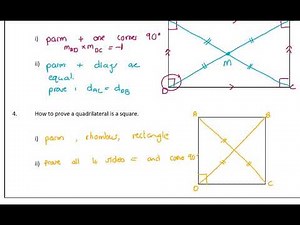 i) parm + one corner 90°
mAD × mDC = -1
ii) parm + diags are
equal
prove : dAC = dDB
M
D
4. How to prove a quadrilateral is a square.
i) parm , rhombus, rectangle
ii) prove all 4 sides = and corner 90°
A B
D C